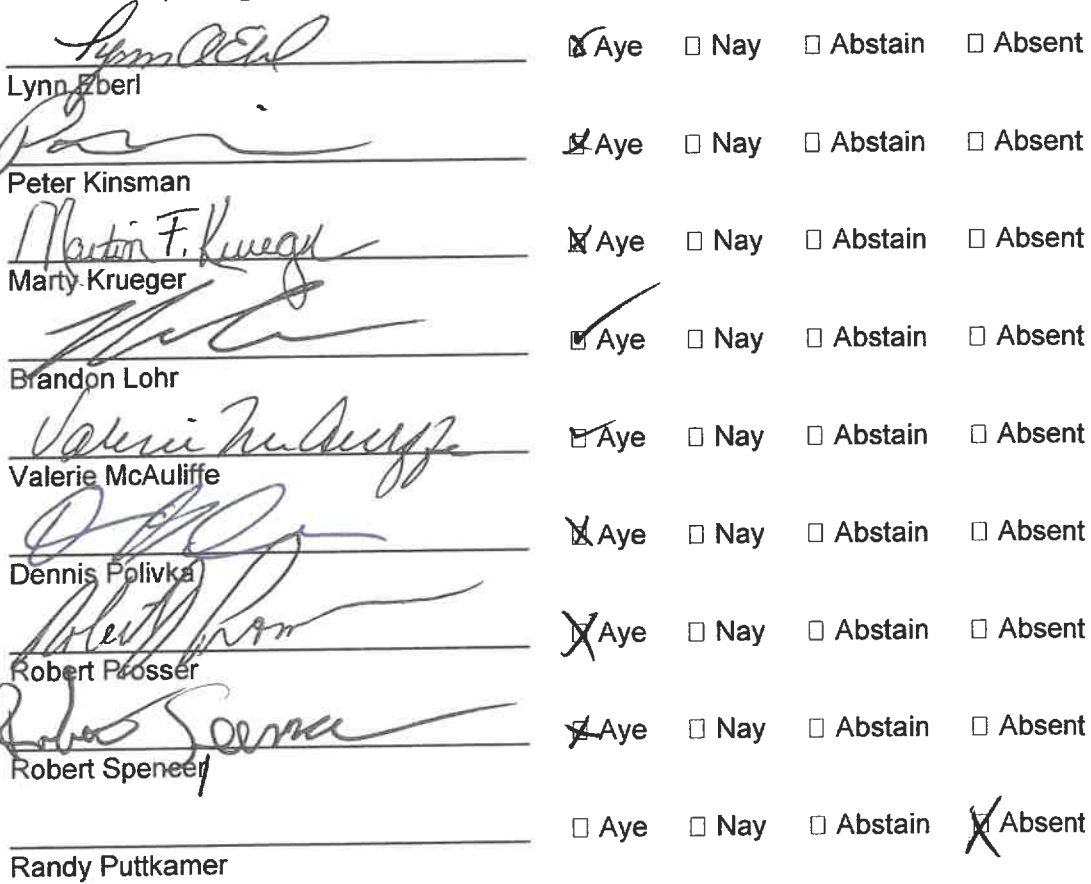 Lynn Eberl
☒ Aye ☐ Nay ☐ Abstain ☐ Absent
Peter Kinsman
☒ Aye ☐ Nay ☐ Abstain ☐ Absent
Martin F. Krueger
Marty Krueger
☒ Aye ☐ Nay ☐ Abstain ☐ Absent
Brandon Lohr
☑ Aye ☐ Nay ☐ Abstain ☐ Absent
Valerie McAuliffe
Valerie McAuliffe
☑ Aye ☐ Nay ☐ Abstain ☐ Absent
Dennis Polivka
☒ Aye ☐ Nay ☐ Abstain ☐ Absent
Robert Prosser
☒ Aye ☐ Nay ☐ Abstain ☐ Absent
Robert Spencer
☒ Aye ☐ Nay ☐ Abstain ☐ Absent
Randy Puttkamer
☐ Aye ☐ Nay ☐ Abstain ☒ Absent